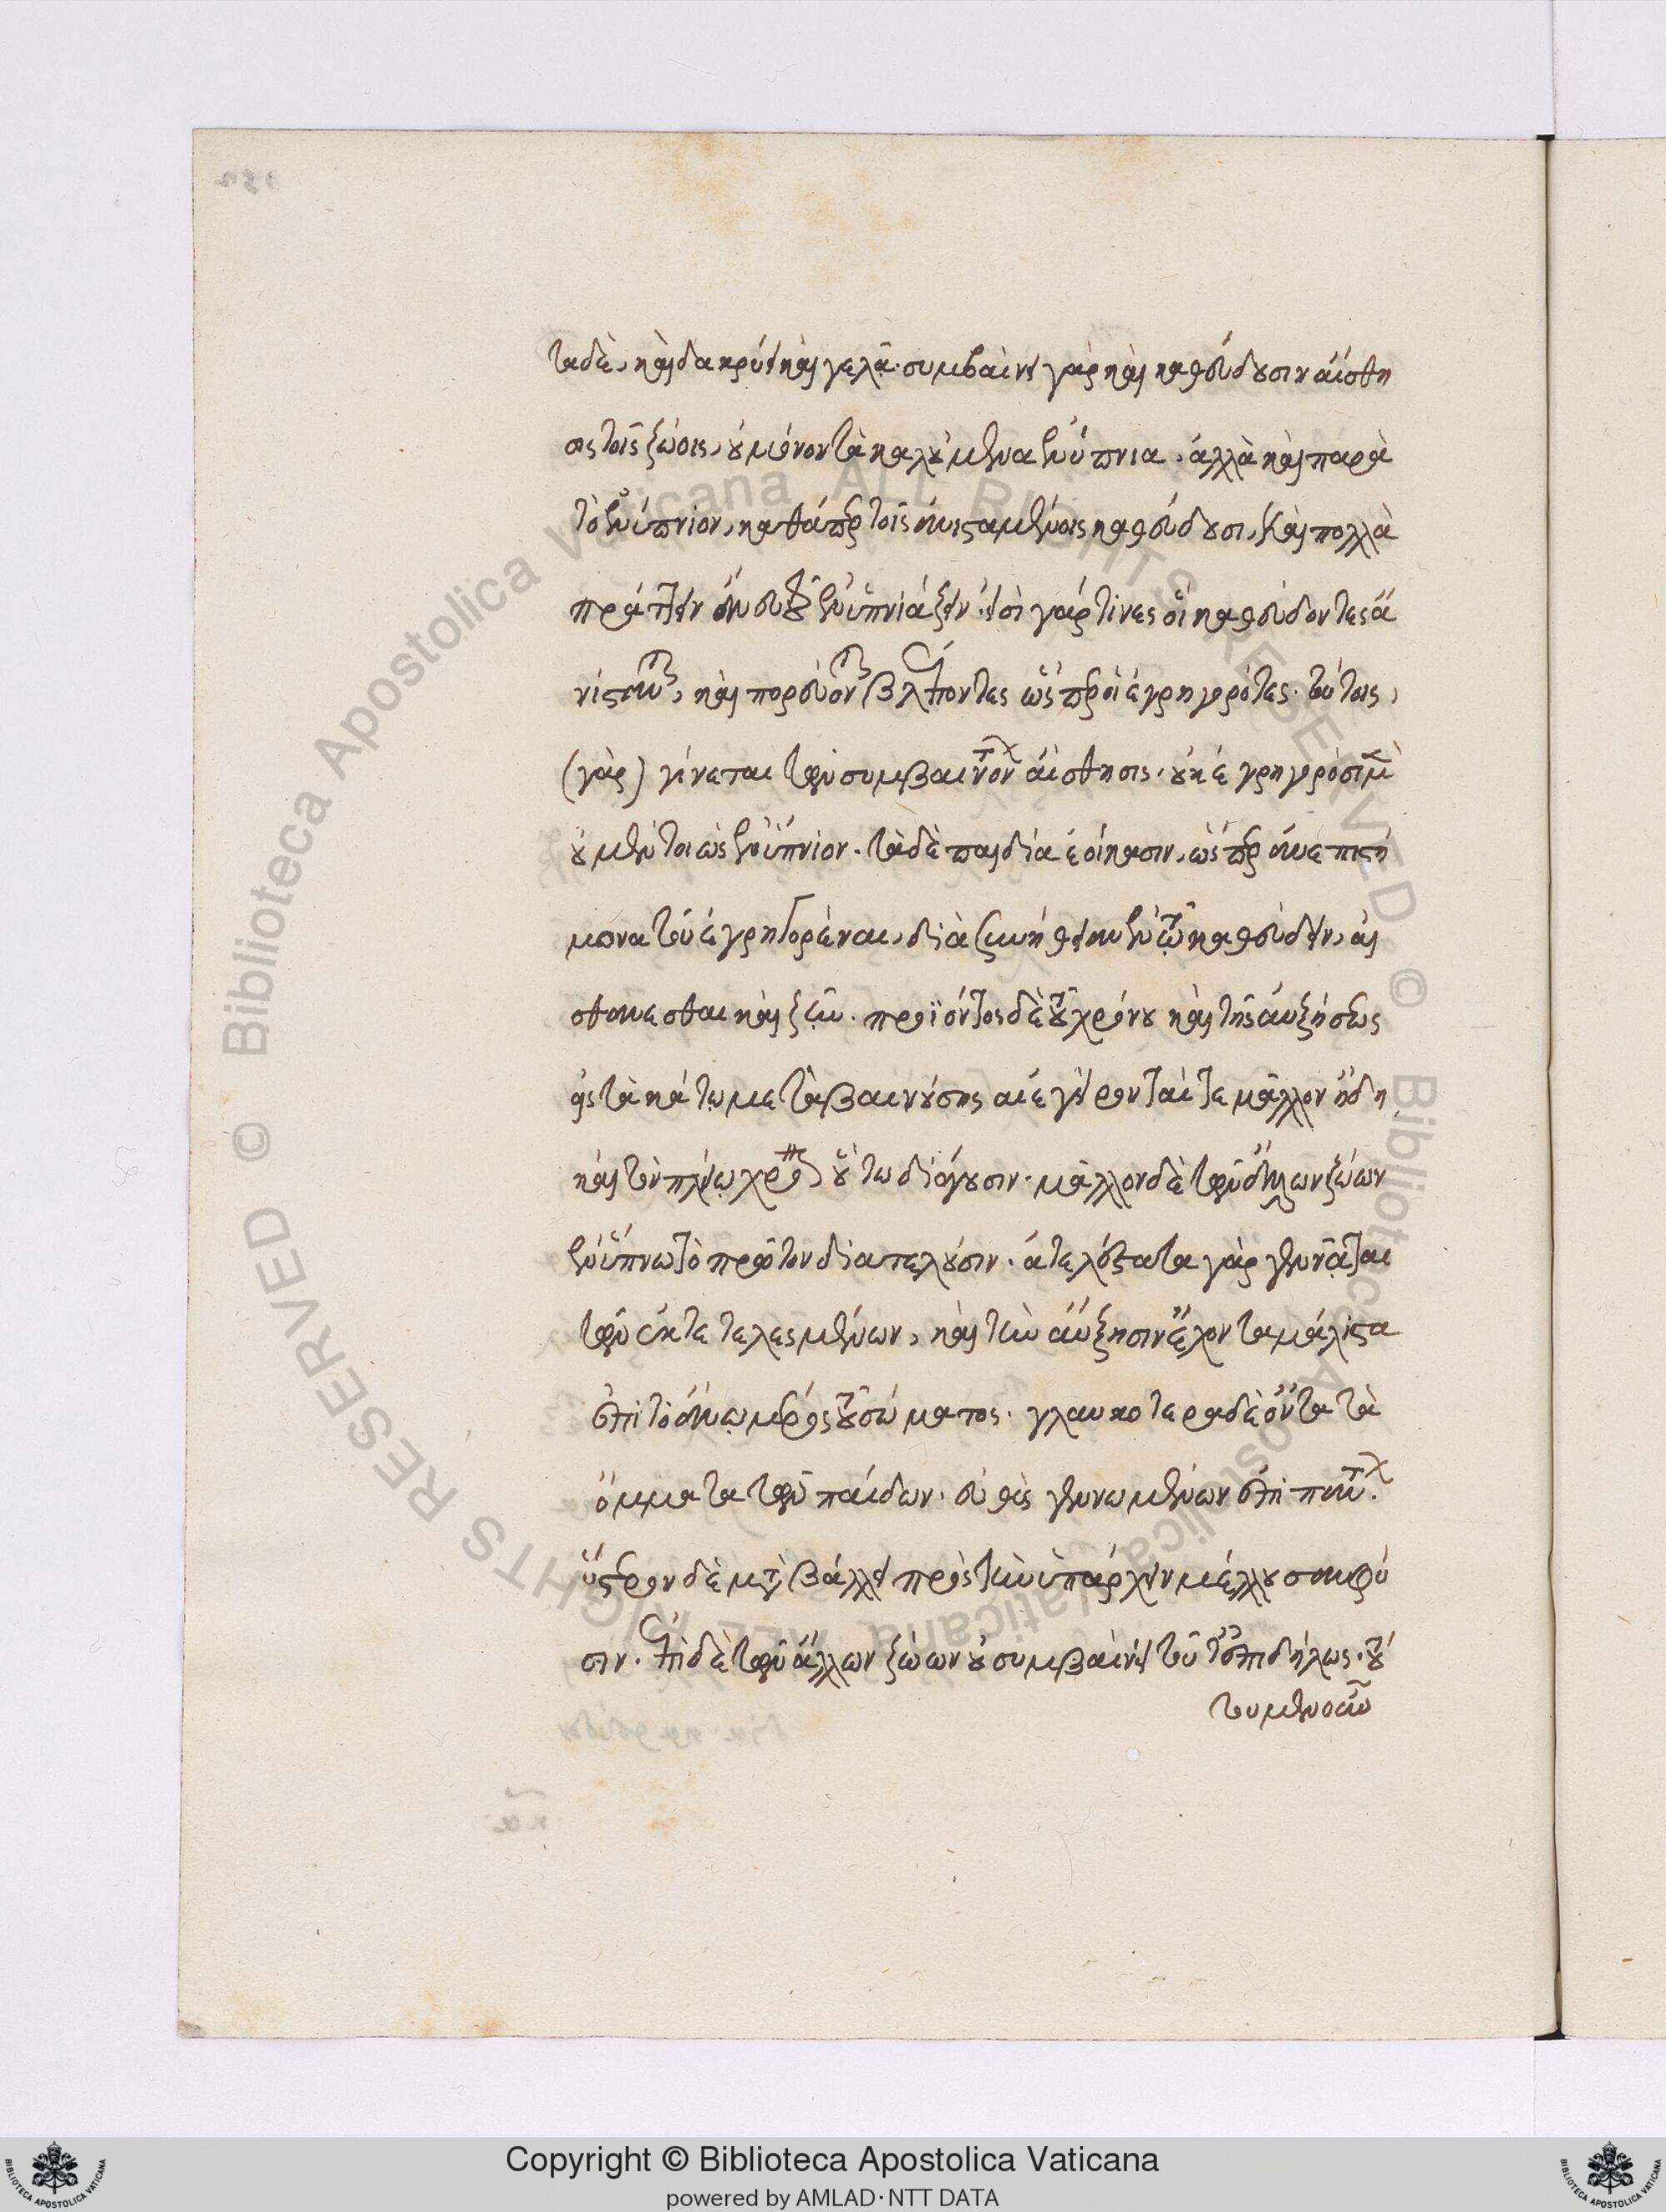 τα δὲ, καὶ δακρύει καὶ γελᾶ. συμβαίνει γὰρ καὶ καθεύδουσιν αἴσθη
σις τοῖς ζώοις, οὐ μόνον τὰ καλούμενα ἐνύπνια, ἀλλὰ καὶ παρὰ
τὸ ἐνύπνιον, καθάπερ τοῖς ἀνισταμένοις καθεύδουσι, καὶ πολλὰ
πράττειν ἄνευ τοῦ ἐνυπνιάζειν. εἰσὶ γάρ τινες οἳ καθεύδοντες ἀ
νίστανται, καὶ πορεύονται βλέποντες ὥσπερ οἱ ἐγρηγορότες. τούτοις,
(γὰρ) γίνεται τῶν συμβαινόντων αἴσθησις. οὐκ ἐγρηγορόσι μὲν
οὐ μέντοι ὡς ἐνύπνιον. τὰ δὲ παιδία ἐοίκασιν, ὥσπερ ἀνεπιστή
μονα τοῦ ἐγρηγορέναι, διὰ συνήθειαν ἐν τῷ καθεύδειν, αἰ
σθάνεσθαι καὶ ζῆν. προϊόντος δὲ τοῦ χρόνου καὶ τῆς αὐξήσεως
εἰς τὰ κάτω μεταβαινούσης ἀεὶ ἐγείρονταί τε μᾶλλον ἤδη
καὶ τὸν πλείω χρόνον οὕτω διάγουσιν. μᾶλλον δὲ τῶν ἄλλων ζώων
ἐν ὕπνῳ τὸ πρῶτον διατελοῦσιν. ἀτελέστατα γὰρ γεννᾶται
τῶν ἐκτετελεσμένων, καὶ τὴν αὔξησιν ἔχοντα μάλιστα
ἐπὶ τὸ ἄνω μέρος τοῦ σώματος. γλαυκότερα δὲ ὄντα τὰ
ὄμματα τῶν παίδων. εὐθὺς γεννωμένων ἐπὶ πάντων.
ὕστερον δὲ μεταβάλλει πρὸς τὴν ὑπάρχειν μέλλουσαν φύ
σιν. ἐπὶ δὲ τῶν ἄλλων ζώων οὐ συμβαίνει τοῦτο ἐπιδήλως. τού
του μὲν οὖν
Copyright © Biblioteca Apostolica Vaticana
powered by AMLAD·NTT DATA